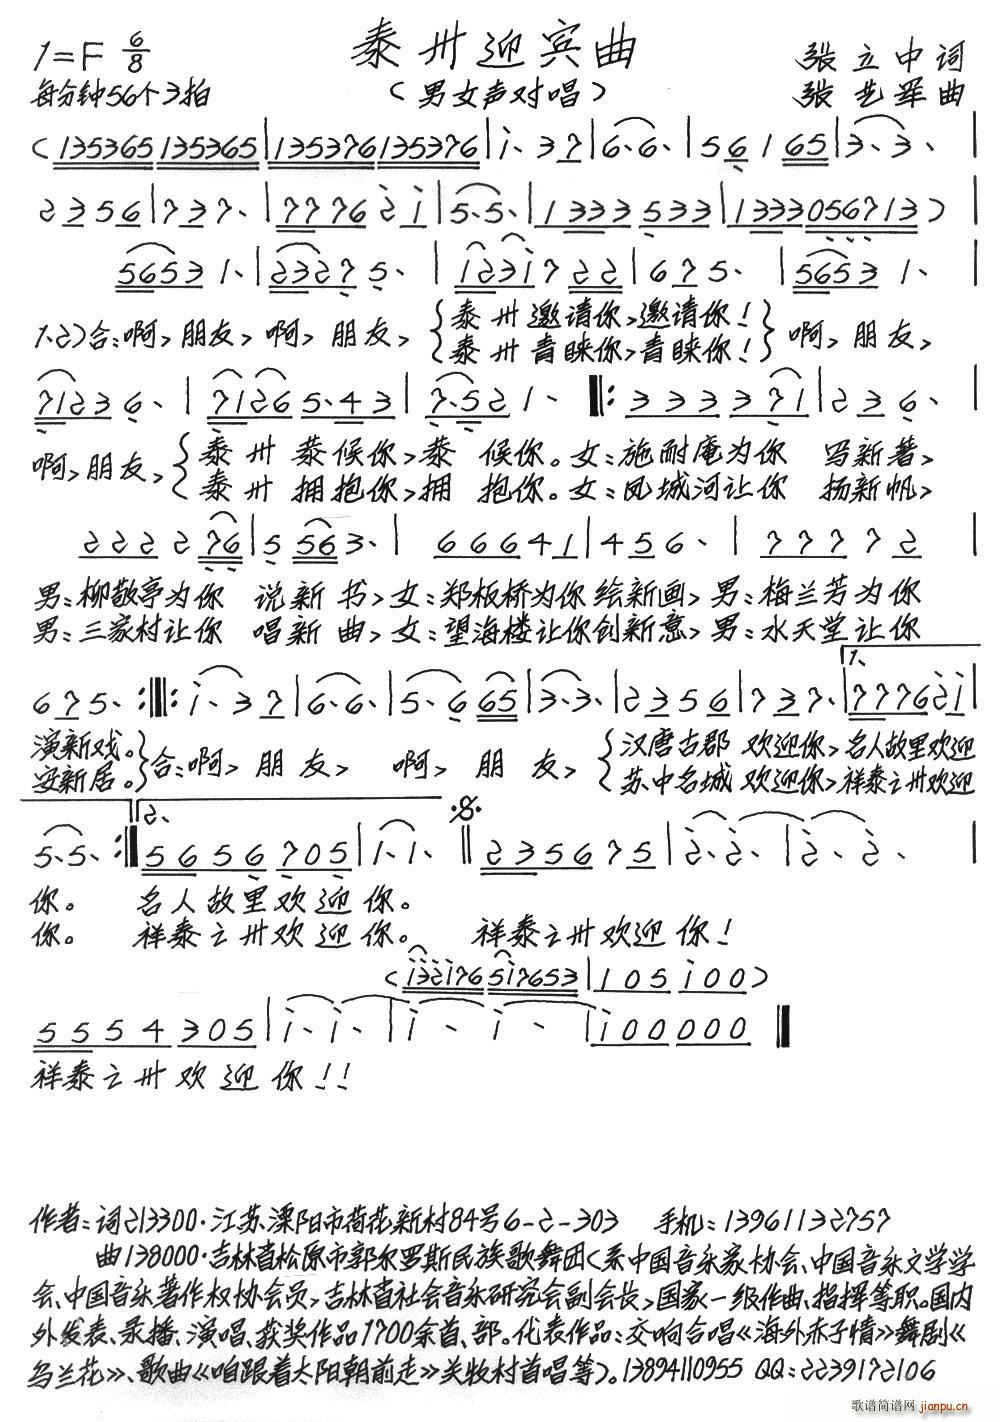 泰州迎宾曲
1=F 6/8
每分钟56个♪拍
（男女声对唱）
张立中词
张艺军曲
(135365 135365|135376 135376|i、37|6、6、|561 65|3、3、|
2356|737、|7776 2i|5、5、|1333 533|1333056713)|
56531、|23275、|i23i722|675、|56531、|
1.2)合:啊,朋友,啊,朋友,{泰州邀请你,邀请你!}啊,朋友,
{泰州青睐你,青睐你!}
71236、|71265、43|7、521、‖:333371|236、|
啊,朋友,{泰州恭候你,恭候你。女:施耐庵为你 写新著,
{泰州拥抱你,拥抱你。女:凤城河让你 扬新帆,
222276|5563、|66641|456、|77772|
男:柳敬亭为你 说新书,女:郑板桥为你绘新画,男:梅兰芳为你
男:三家村让你 唱新曲,女:望海楼让你创新意,男:水天堂让你
675、:‖:i、37|6、6、|5、665|3、3、|2356|737、|1、7776 2i|
演新戏。}合:啊,朋友,啊,朋友,{汉唐古郡 欢迎你,名人故里欢迎
安新居。}{苏中名城 欢迎你,祥泰之州欢迎
5、5、:‖2、5656 705|i、i、‖235675|2、2、|2、2、|
你。 名人故里欢迎你。
你。 祥泰之州欢迎你。 祥泰之州欢迎你!
(i32i76 5i7653|105 i00)
5554 305|i、i、|i、i、|i00000‖
祥泰之州欢迎你!!
作者:词213300·江苏溧阳市荷花新村84号6-2-303 手机:13961132757
曲138000·吉林省松原市郭尔罗斯民族歌舞团(系中国音乐家协会、中国音乐文学学
会、中国音乐著作权协会员,吉林省社会音乐研究会副会长,国家一级作曲、指挥等职。国内
外发表、录播、演唱、获奖作品1700余首、部。代表作品:交响合唱《海外赤子情》舞剧《
乌兰花》、歌曲《咱跟着太阳朝前走》关牧村首唱等)。13894110955 QQ:2239172106
歌谱简谱网
jianpu.cn